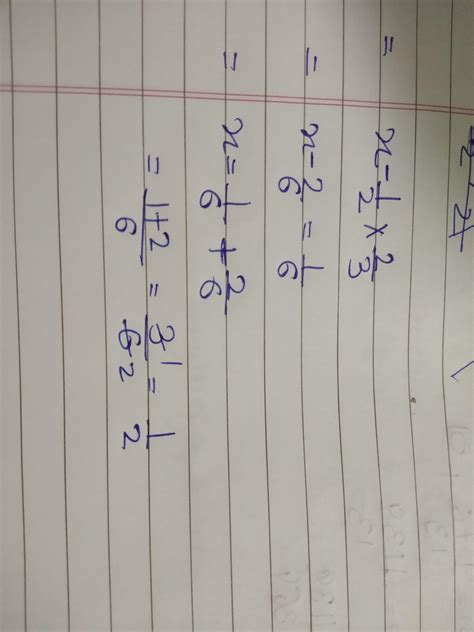 = x - 1/2 × 2/3
= x - 2/6 = 1/6
= x = 1/6 + 2/6
= 1+2/6 = 3 1/6 2 = 1/2